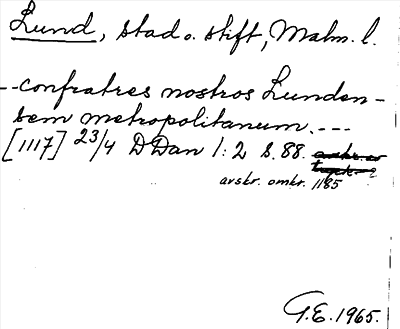 Lund, stad o. stift, Malm. l.
--confratres nostros Lunden-
sem metropolitanum.---
[1117] 23/4 DDan 1:2 s. 88.
avskr. omkr. 1185
G.E. 1965.